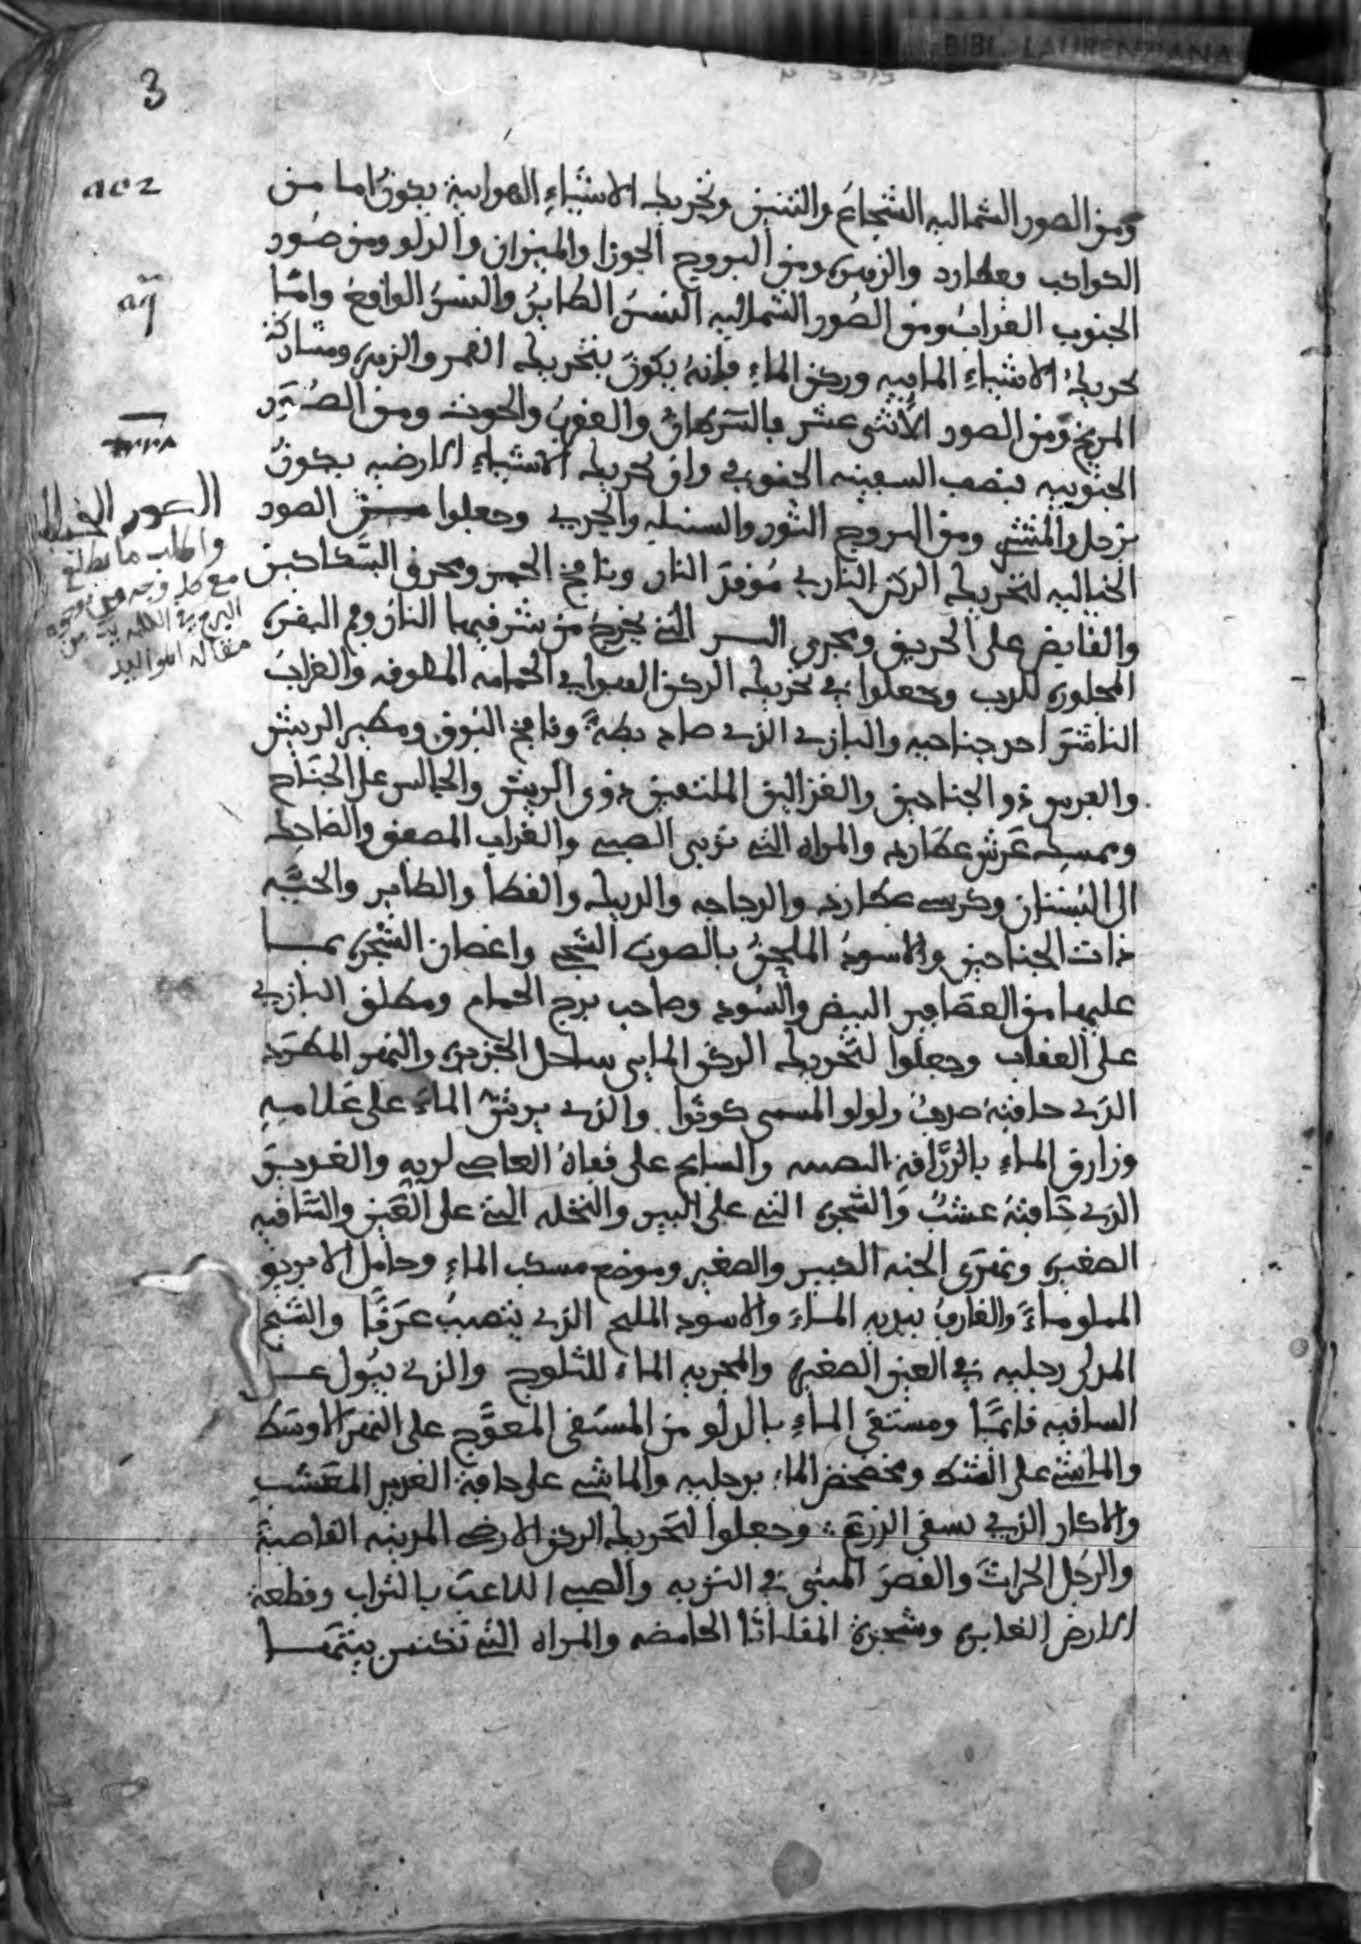 BIBL. LAURENZIANA
3
ومن الصور الشماليه الشجاع والتنين وتحريك الاشياء الهوايية يكون اما من
الكواكب بعطارد والزهره ومن البروج الجوزا والميزان والدلو ومن صور
الجنوب الغراب ومن الصور الشماليه النسر الطاير والنسر الواقع واما
تحريك الاشياء الماييه وركن الماء فانه يكون بتحريك القمر والزهره ومشاركة
المريخ ومن الصور الاثنى عشر بالسرطان والعقرب والحوت ومن الصور
الجنوبيه بنصف السفينه الجنوبي وان تحريك الاشياء الارضيه يكون
بزحل والمشتري ومن البروج الثور والسنبله والجدي وجعلوا من الصور
الخياليه لتحريك الركن الناري موقد النار ونافخ الجمر ومحرق السكاكين
والقابض على الحريق ومجرى التي يخرج من بئر فيها النار ودم البقره
المجاوره للدب وجعلوا في تحريك الركن الهوايي الحمامه المطوقه والغراب
الناشر احد جناحيه والبازي الذي صاد بطة ونافخ البوق ومطير الريش
والفرس ذو الجناحين والغزالين الملتفين ذوي الريش والجالس على الجناح
وممسك عرش عطارد والمراه التي تربي الصبي والغراب المصفق والضاحك
الى البستان وكرسي عطارد والدجاجه والديك والقطا والطاير والحية
ذات الجناحين والاسود الملحن بالصوت الشجي واغصان الشجره بما
عليها من العصافير البيض والسود وصاحب برج الحمام ومطلق البازي
على العقاب وجعلوا لتحريك الركن المايي ساحل الجزيره والنهر المطرد
الذي حافته صدف ولولو المسمى كوثرا والذي يرش الماء على غلاميه
وزارق الماء بالزراقة والسابح على قفاه العاصي لربه والغدير
الذي حافته عشب والشجره التي على البير والنخله التي على العين والساقيه
الصغيره ونهرى الجنه الكبير والصغير وموضع مسكب الماء وحامل الابريق
المملو ماء والغارف بيديه الماء والاسود المليح الذي يتصبب عرقا والشيخ
المدلى رجليه في العين الصغيره والمجريه الماء للثلوج والذي يبول على
الساقيه قايما ومستقى الماء بالدلو من المستقى المعوج على النهر الاوسط
والماشي على الشط ومخضخض الماء برجليه والماشي على حافة الغدير المعشب
والاكار الذي يسقي الزرع وجعلوا لتحريك الركن الارضي المدينه القاصية
والرجل الحراث والقصر المبني في التربه والصبي اللاعب بالتراب وقطعة
الارض الغابره وشجرة الحامضه والمراه التي تكنس بيتها
الصور الخياليه
واطلب ما يطلع
مع كل وجه من وجوه